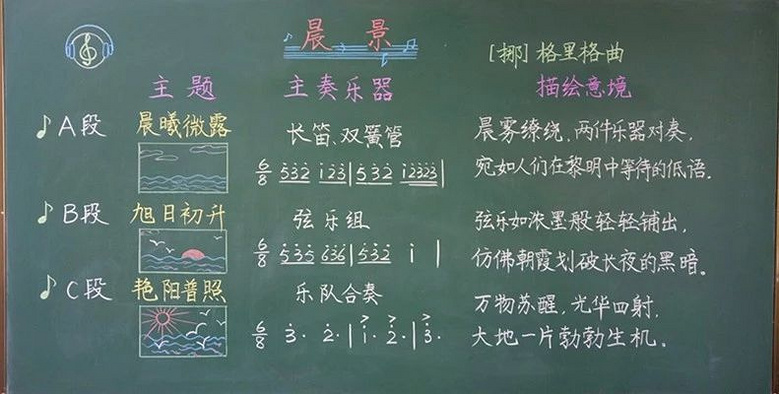 晨景
[挪]格里格曲
主题 主奏乐器 描绘意境
A段 晨曦微露 长笛、双簧管 晨雾缭绕,两件乐器对奏,
6/8 532 123|532 12323 宛如人们在黎明中等待的低语。
B段 旭日初升 弦乐组 弦乐如浓墨般轻轻铺出,
6/8 535 636|532 i | 仿佛朝霞划破长夜的黑暗。
C段 艳阳普照 乐队合奏 万物苏醒,光华四射,
6/8 3· 2·|i· 2·|3· 大地一片勃勃生机。